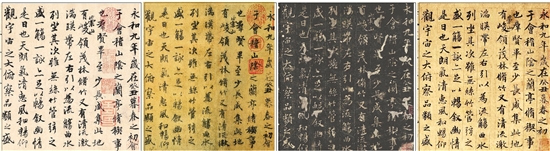 永和九年歲在癸丑暮春之初會
于會稽山陰之蘭亭脩禊事
也羣賢畢至少長咸集此地
有崇山峻領茂林脩竹又有清流激
湍暎帶左右引以為流觴曲水
列坐其次雖無絲竹管弦之
盛一觴一詠亦足以暢叙幽情
是日也天朗氣清惠風和暢仰
觀宇宙之大俯察品類之盛
永和九年歲在癸丑暮春之初會
于會稽山陰之蘭亭脩禊事
也羣賢畢至少長咸集此地
有崇山峻領茂林脩竹又有清流激
湍暎帶左右引以為流觴曲水
列坐其次雖無絲竹管弦之
盛一觴一詠亦足以暢叙幽情
是日也天朗氣清惠風和暢仰
觀宇宙之大俯察品類之盛
永和九年歲在癸丑暮春之初會
于會稽山陰之蘭亭脩禊事
也羣賢畢至少長咸集此地
有崇山峻領茂林脩竹又有清流激
湍暎帶左右引以為流觴曲水
列坐其次雖無絲竹管弦之
盛一觴一詠亦足以暢叙幽情
是日也天朗氣清惠風和暢仰
觀宇宙之大俯察品類之盛
永和九年歲在癸丑暮春之初會
于會稽山陰之蘭亭脩禊事
也羣賢畢至少長咸集此地
有崇山峻領茂林脩竹又有清流激
湍暎帶左右引以為流觴曲水
列坐其次雖無絲竹管弦之
盛一觴一詠亦足以暢叙幽情
是日也天朗氣清惠風和暢仰
觀宇宙之大俯察品類之盛